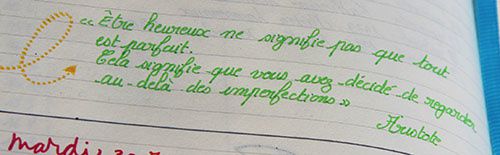 « Être heureux ne signifie pas que tout
est parfait.
Cela signifie que vous avez décidé de regarder
au-delà des imperfections »
Aristote
Mardi